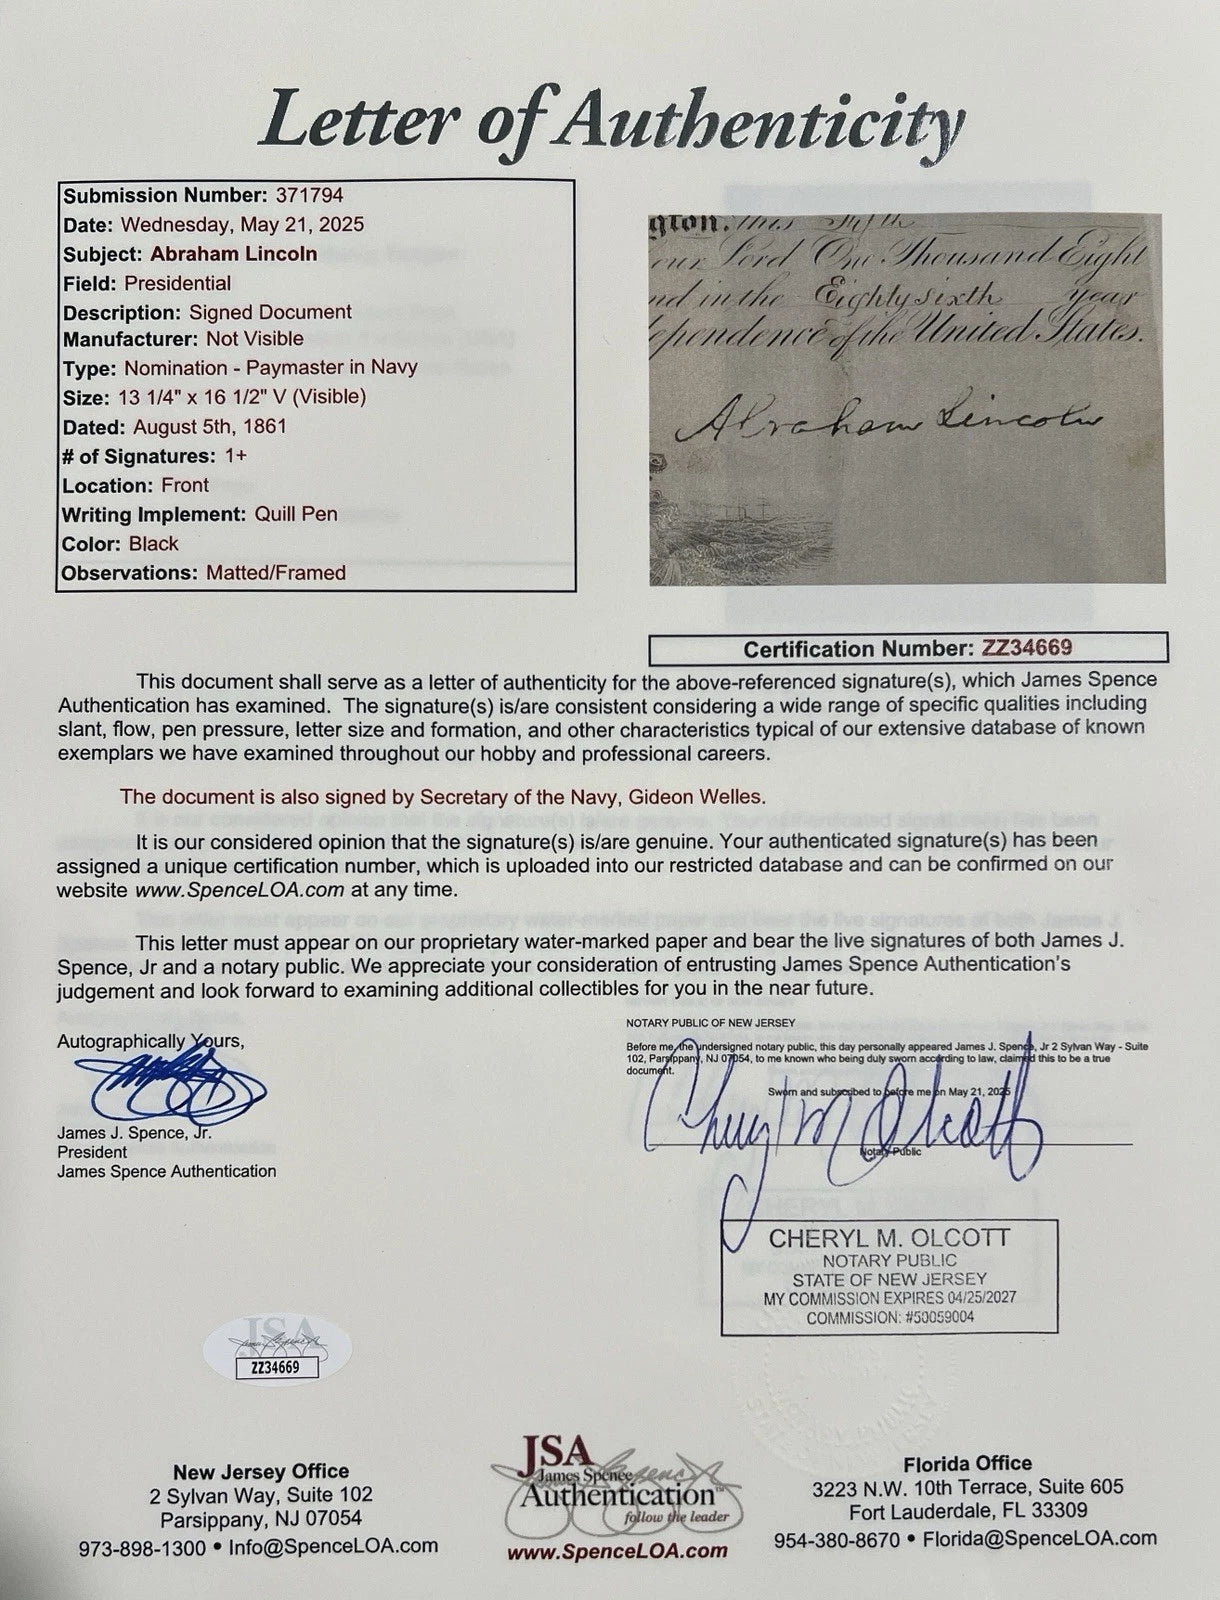 Letter of Authenticity
Submission Number: 371794
Date: Wednesday, May 21, 2025
Subject: Abraham Lincoln
Field: Presidential
Description: Signed Document
Manufacturer: Not Visible
Type: Nomination - Paymaster in Navy
Size: 13 1/4" x 16 1/2" V (Visible)
Dated: August 5th, 1861
# of Signatures: 1+
Location: Front
Writing Implement: Quill Pen
Color: Black
Observations: Matted/Framed
gton, this Fifth
our Lord One Thousand Eight
nd in the Eighty sixth year
dependence of the United States.
Abraham Lincoln
Certification Number: ZZ34669
This document shall serve as a letter of authenticity for the above-referenced signature(s), which James Spence
Authentication has examined. The signature(s) is/are consistent considering a wide range of specific qualities including
slant, flow, pen pressure, letter size and formation, and other characteristics typical of our extensive database of known
exemplars we have examined throughout our hobby and professional careers.
The document is also signed by Secretary of the Navy, Gideon Welles.
It is our considered opinion that the signature(s) is/are genuine. Your authenticated signature(s) has been
assigned a unique certification number, which is uploaded into our restricted database and can be confirmed on our
website www.SpenceLOA.com at any time.
This letter must appear on our proprietary water-marked paper and bear the live signatures of both James J.
Spence, Jr and a notary public. We appreciate your consideration of entrusting James Spence Authentication's
judgement and look forward to examining additional collectibles for you in the near future.
Autographically Yours,
James J. Spence, Jr.
President
James Spence Authentication
NOTARY PUBLIC OF NEW JERSEY
Before me, the undersigned notary public, this day personally appeared James J. Spence, Jr 2 Sylvan Way - Suite
102, Parsippany, NJ 07054, to me known who being duly sworn according to law, claimed this to be a true
document.
Sworn and subscribed to before me on May 21, 2025
Cheryl M Olcott
Notary Public
CHERYL M. OLCOTT
NOTARY PUBLIC
STATE OF NEW JERSEY
MY COMMISSION EXPIRES 04/25/2027
COMMISSION: #50059004
JSA
ZZ34669
New Jersey Office
2 Sylvan Way, Suite 102
Parsippany, NJ 07054
973-898-1300 • Info@SpenceLOA.com
JSA
James Spence
Authentication™
follow the leader
www.SpenceLOA.com
Florida Office
3223 N.W. 10th Terrace, Suite 605
Fort Lauderdale, FL 33309
954-380-8670 • Florida@SpenceLOA.com